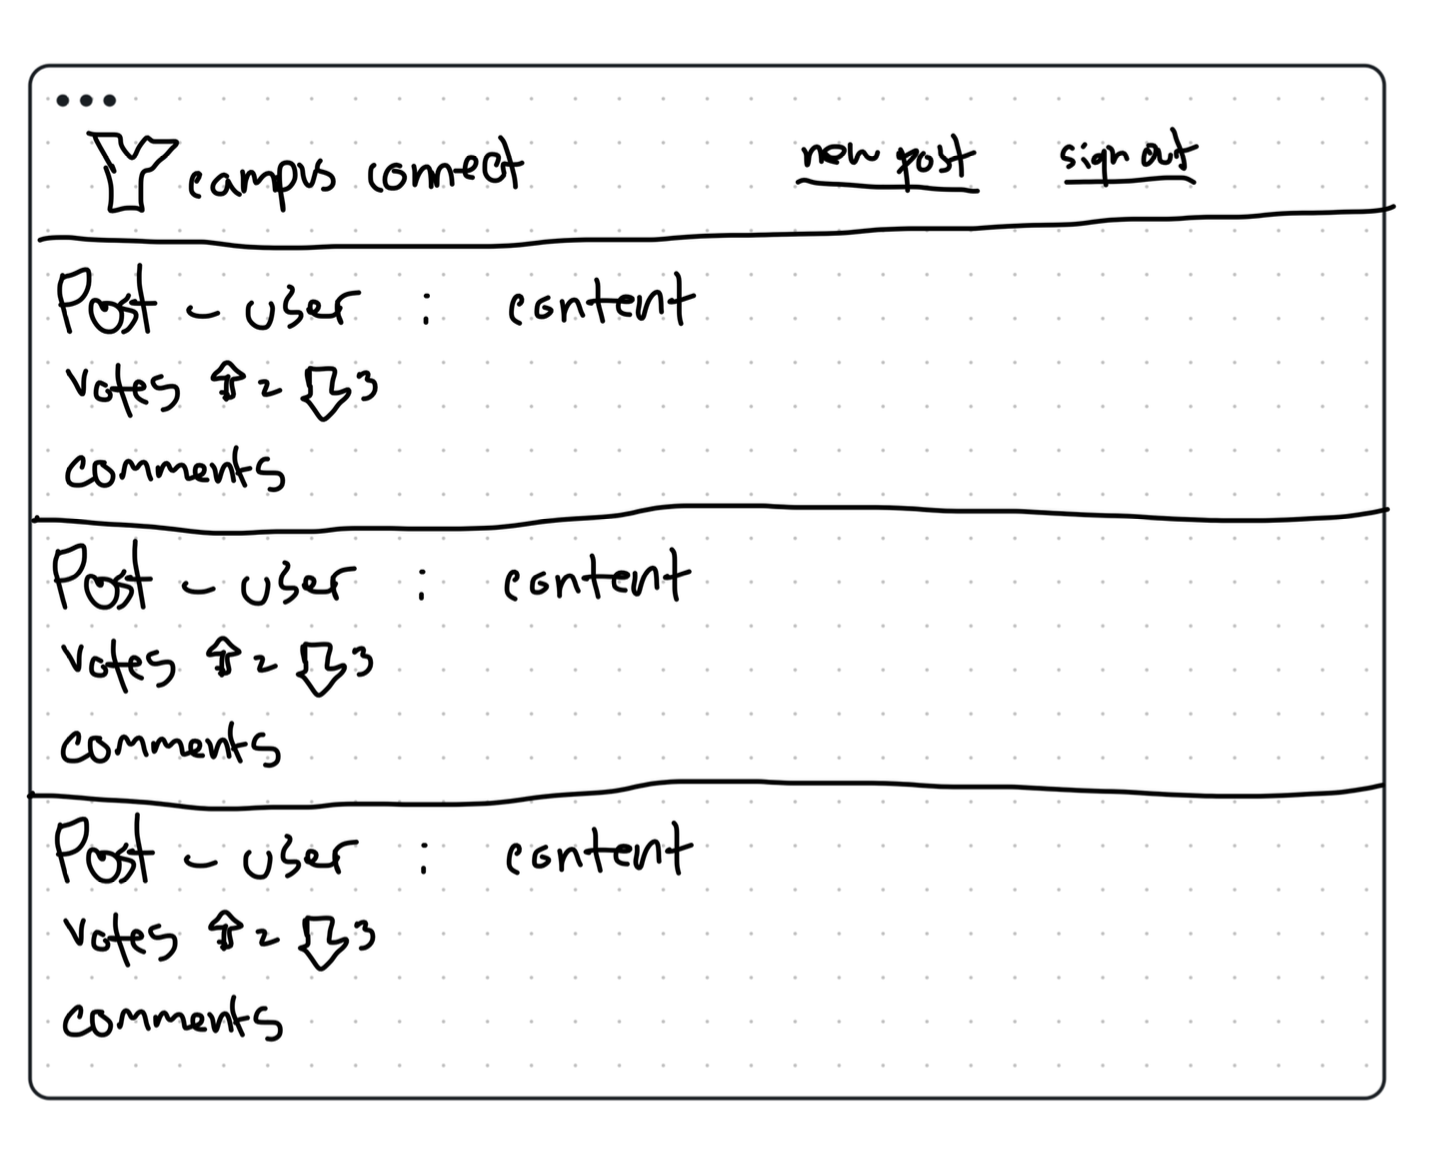 Y campus connect new post sign out
Post - user : content
votes ⇧ 2 ⇩ 3
comments
Post - user : content
votes ⇧ 2 ⇩ 3
comments
Post - user : content
votes ⇧ 2 ⇩ 3
comments